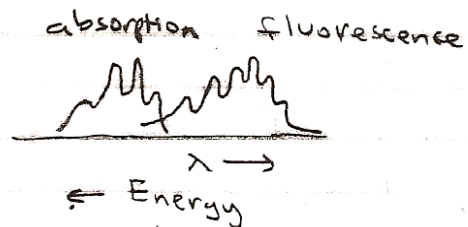 absorption fluorescence
λ →
← Energy